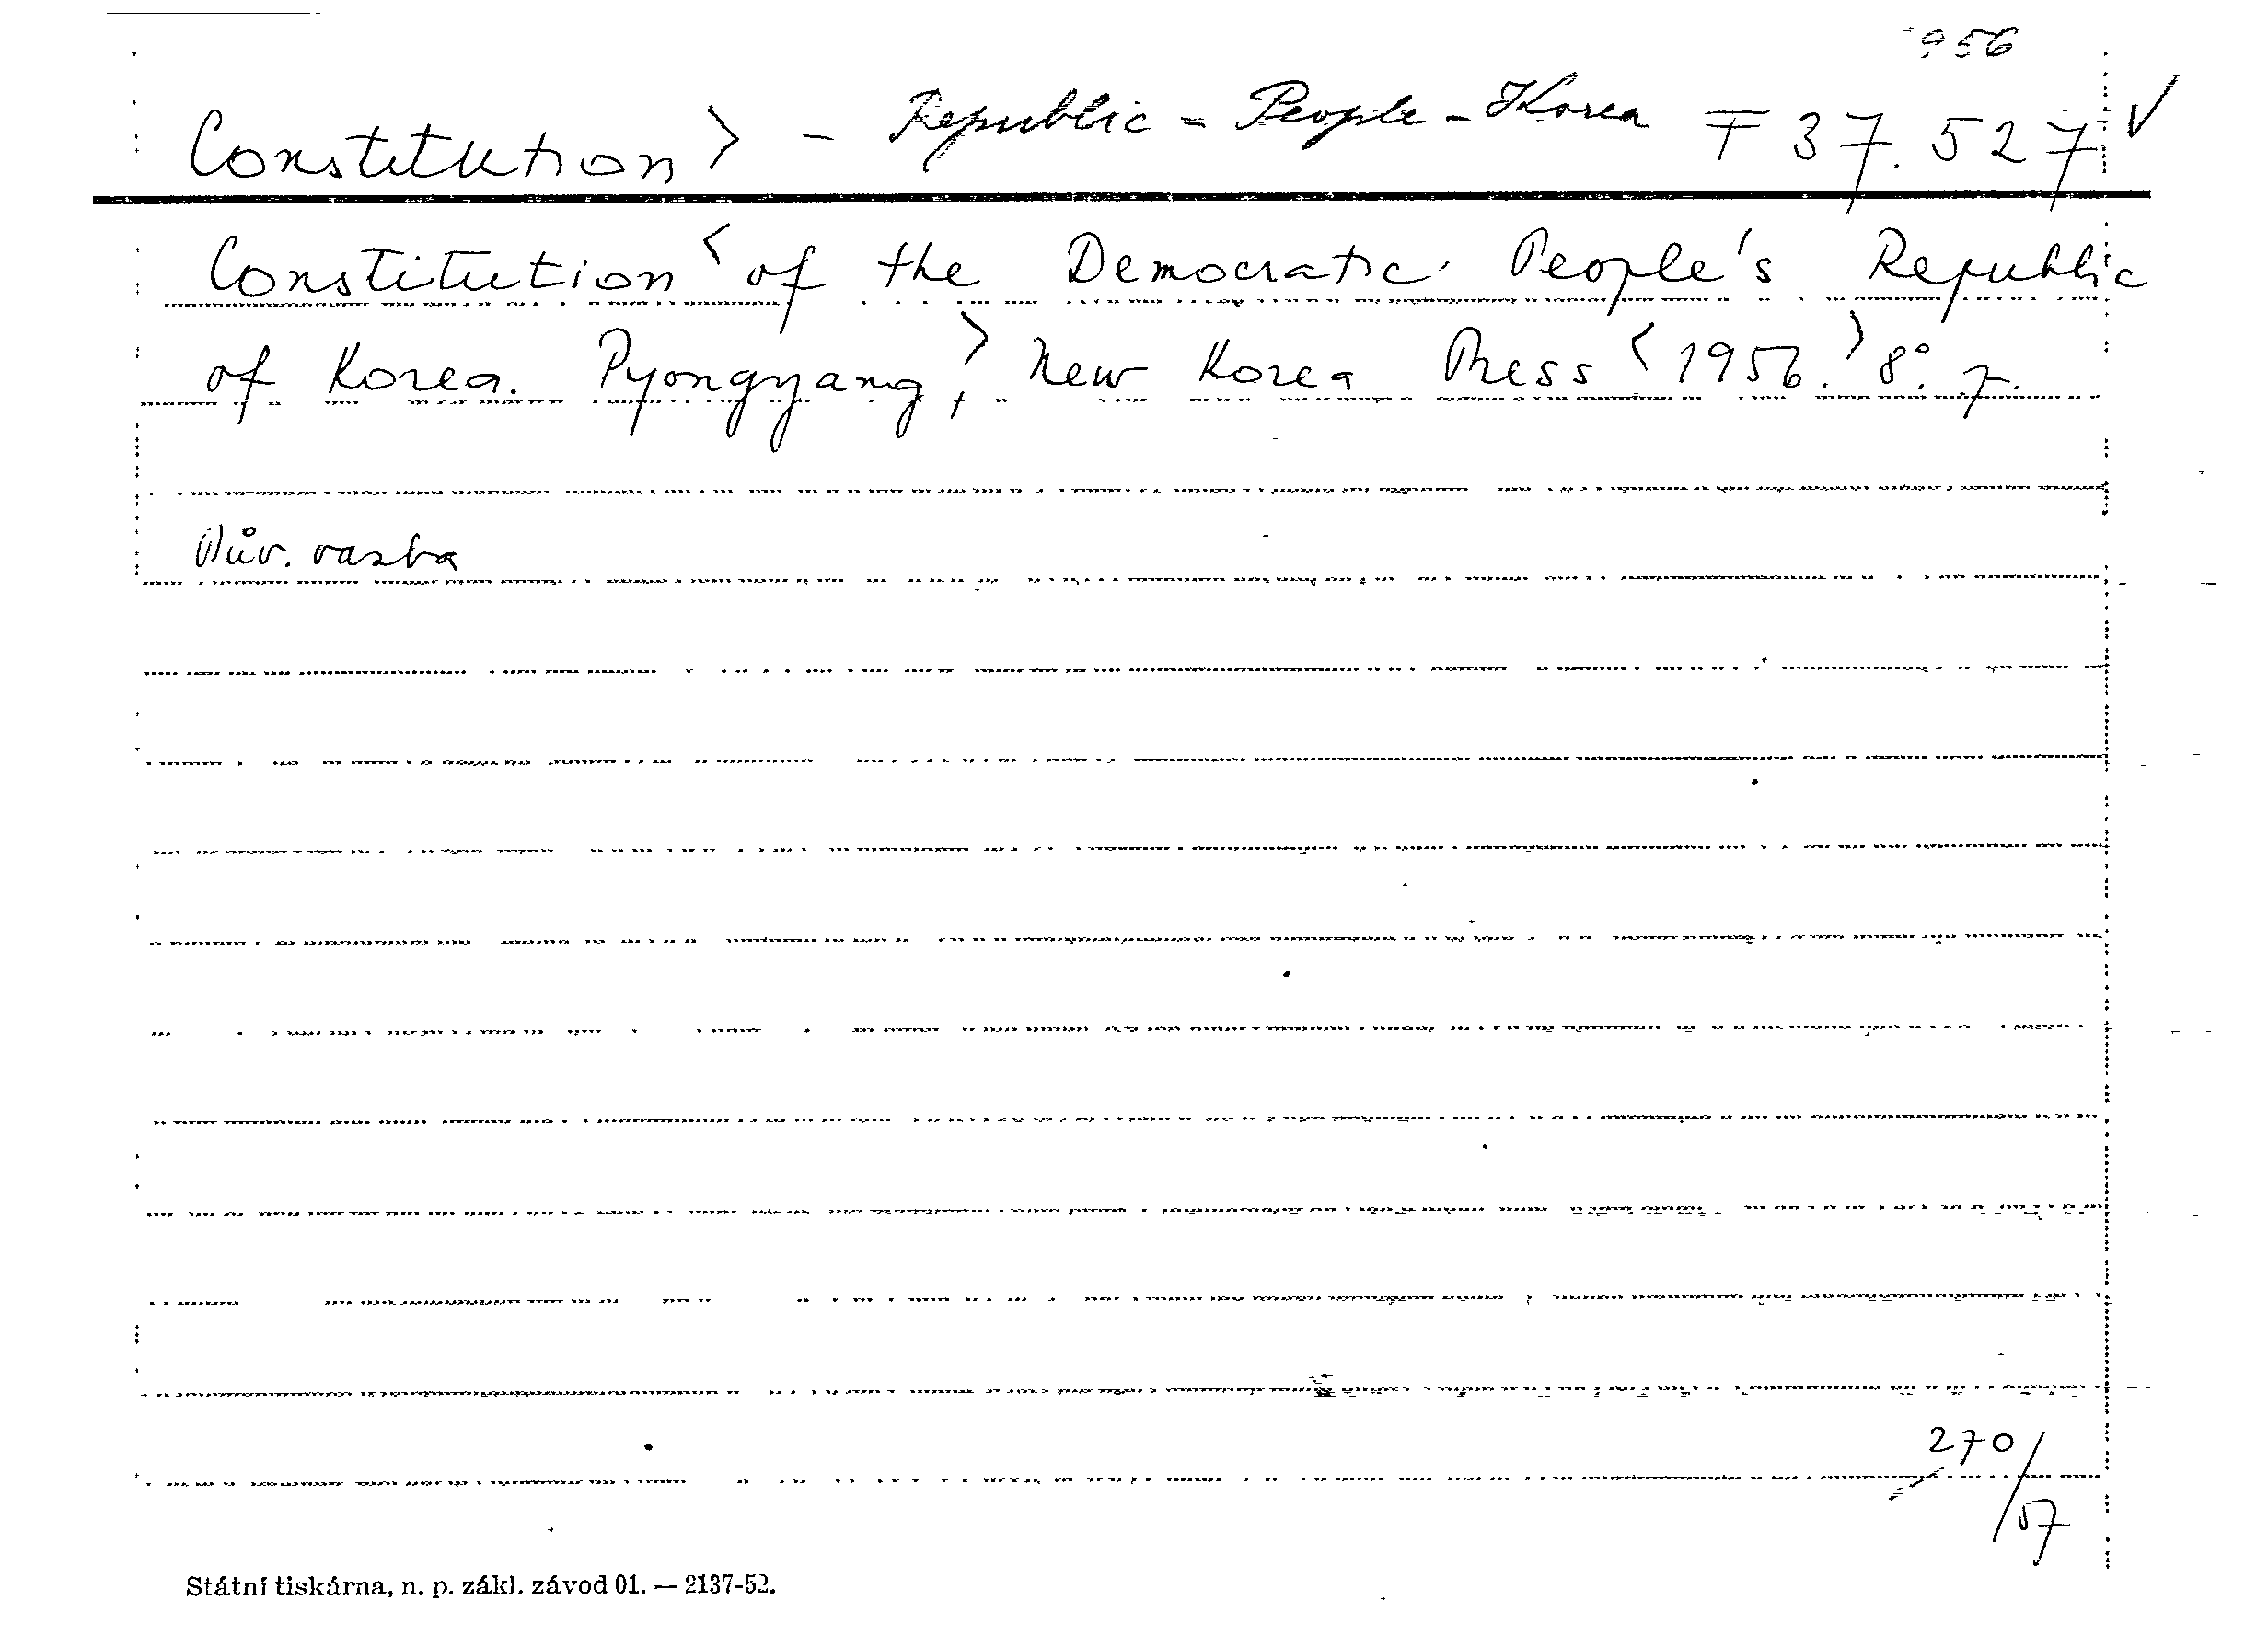 956
Constitution> - Republic = People - Korea F 37.527 V
Constitution < of the Democratic People's Republic
of Korea. Pyongyang,> New Korea Press <1956.> 8°.
Pův. vazba
270/57
Státní tiskárna, n. p. zákl. závod 01. — 2137-52.